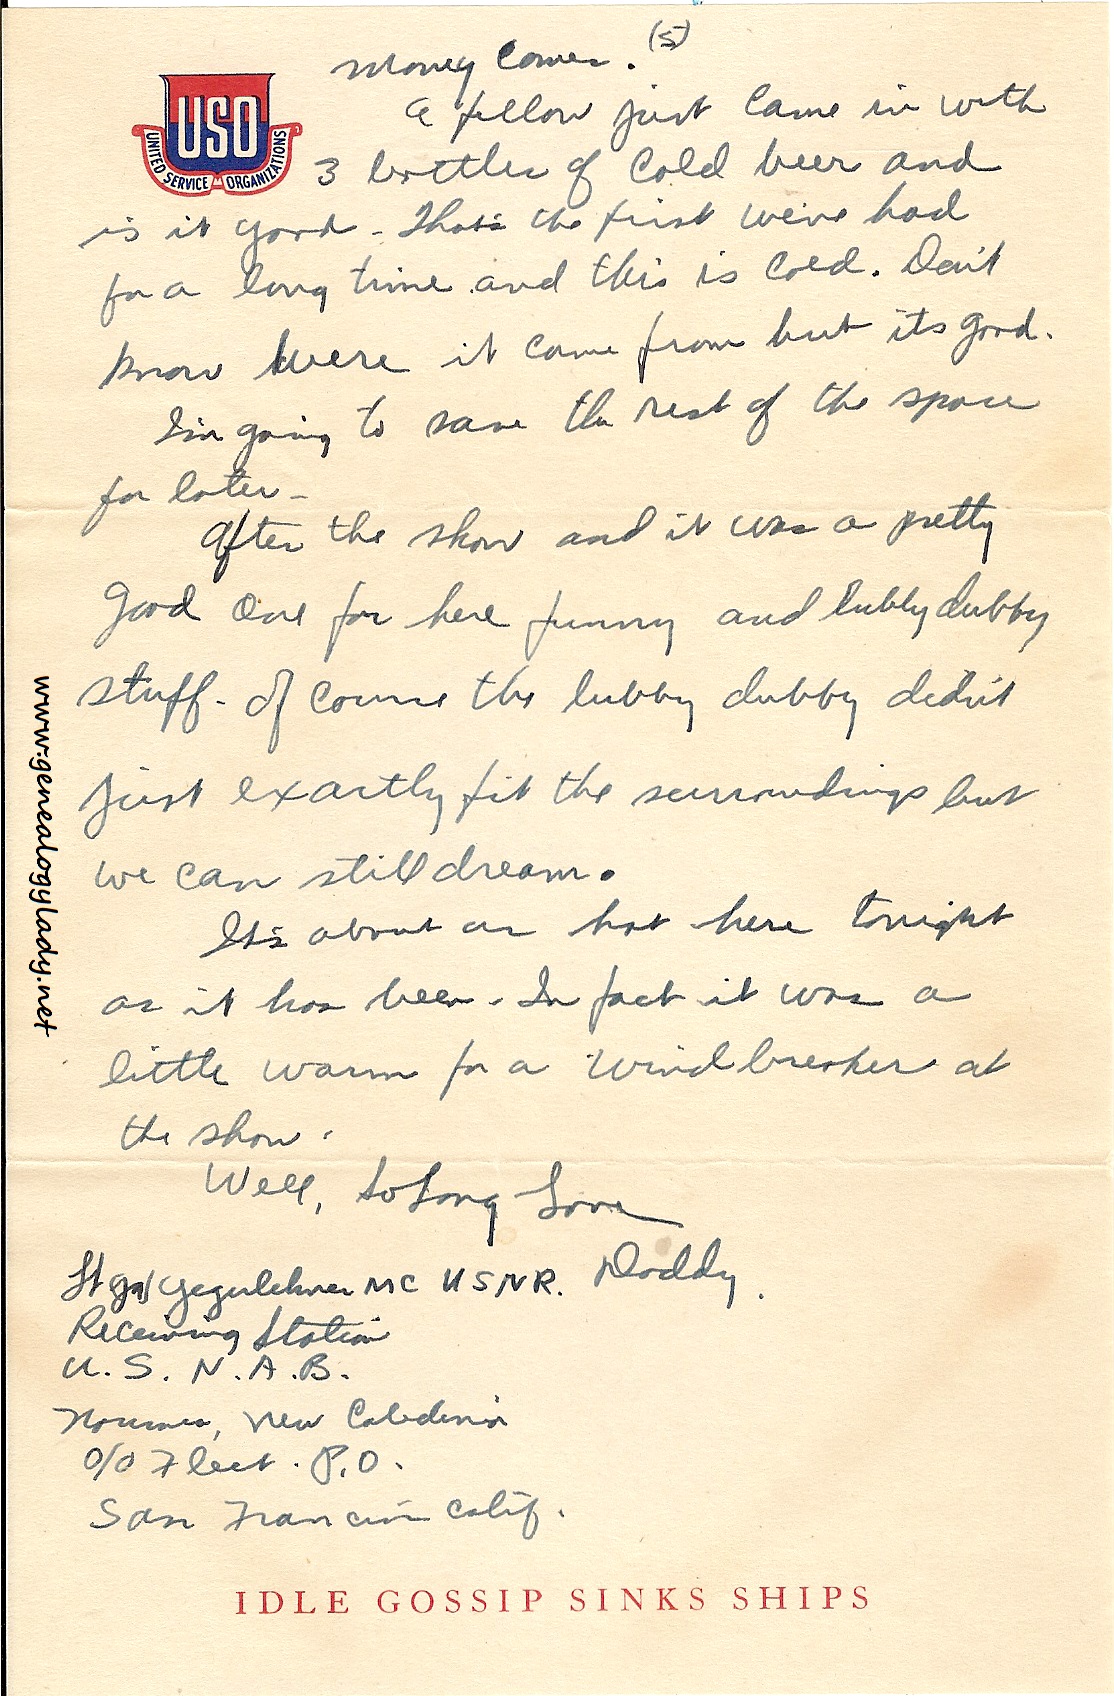 (5)
money comes.
USO
UNITED SERVICE ORGANIZATIONS
A fellow just came in with
3 bottles of cold beer and
is it good - That's the first we've had
for a long time and this is cold. Don't
know were it came from but its good.
I'm going to save the rest of the space
for later -
After the show and it was a pretty
good one for here funny and lubby dubby
stuff - Of course the lubby dubby didn't
just exactly fit the surroundings but
we can still dream.
Its about as hot here tonight
as it has been - In fact it was a
little warm for a wind breaker at
the show.
Well, So Long Love
Daddy.
Lt (jg) Yegerlehner MC USNR.
Receiving Station
U. S. N. A. B.
Noumea, New Caledonia
c/o Fleet. P.O.
San Francisco Calif.
IDLE GOSSIP SINKS SHIPS
www.genealogylady.net